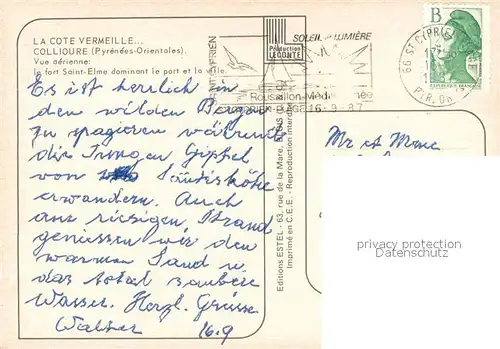 LA COTE VERMEILLE...
COLLIOURE (Pyrénées-Orientales)
Vue aérienne:
le fort Saint-Elme dominant le port et la ville.
Es ist herrlich in
den wilden Bergen
zu
die Gipfel
von
erwandern. Auch
am riesigen Strand
geniessen wir den
warmen Sand u.
das total saubere
Wasser. Herzl. Grüsse
Walter 16.9
Production
LECONTE
Editions ESTEL - 63, rue de la Mare,
Imprimé en C.E.E. - Reproduction interdite
SOLEIL LUMIÈRE
PLAGE 16-9-87
B
REPUBLIQUE FRANÇAISE
66 ST CYPRIEN
PYR. OR
Mr et Mme
privacy protection
Datenschutz